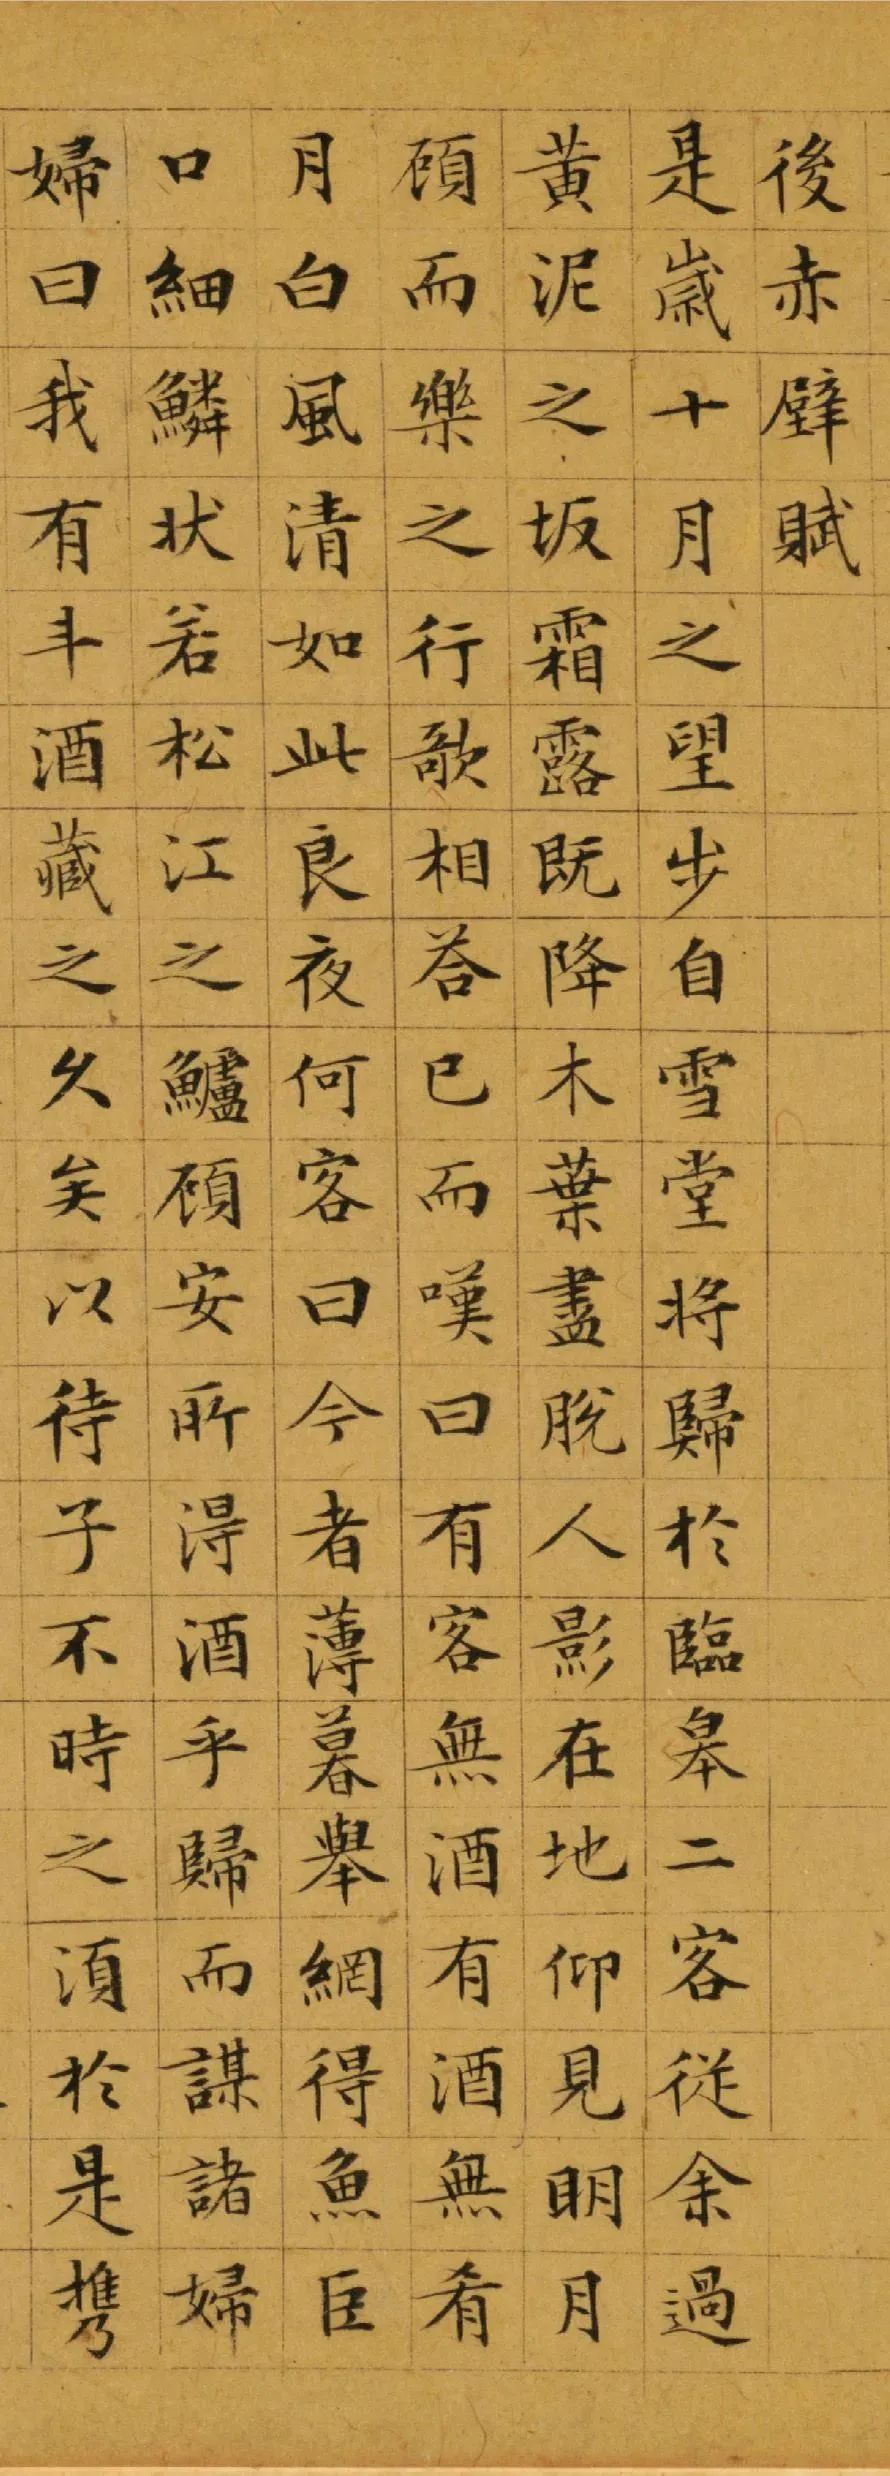 後赤壁賦
是歳十月之望步自雪堂將歸於臨皋二客從余過
黃泥之坂霜露既降木葉盡脫人影在地仰見明月
顧而樂之行歌相荅已而嘆曰有客無酒有酒無肴
月白風清如此良夜何客曰今者薄暮舉網得魚臣
口細鱗狀若松江之鱸顧安所得酒乎歸而謀諸婦
婦曰我有斗酒藏之久矣以待子不時之須於是携